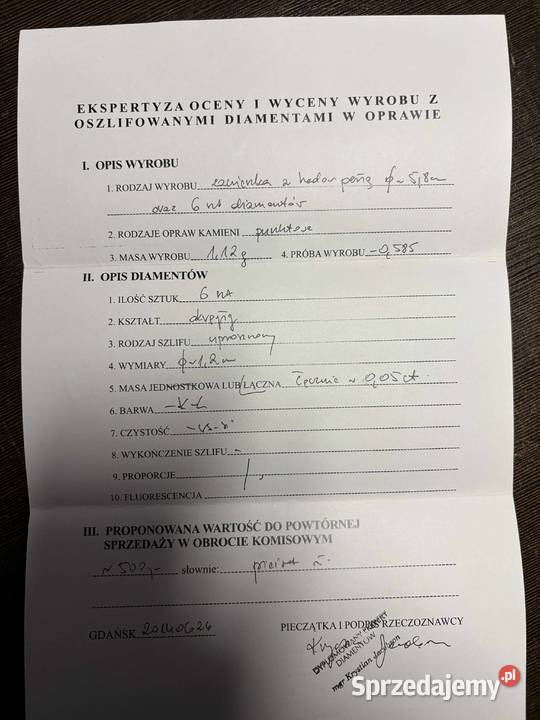 EKSPERTYZA OCENY I WYCENY WYROBU Z
OSZLIFOWANYMI DIAMENTAMI W OPRAWIE
I. OPIS WYROBU
1. RODZAJ WYROBU z φ ~ 5,8
oraz 6 szt diamentów
2. RODZAJE OPRAW KAMIENI punktowe
3. MASA WYROBU 1,12g 4. PRÓBA WYROBU -0,585
II. OPIS DIAMENTÓW
1. ILOŚĆ SZTUK 6
2. KSZTAŁT okrągły
3. RODZAJ SZLIFU uproszczony
4. WYMIARY φ ~ 1,2
5. MASA JEDNOSTKOWA LUB ŁĄCZNA łącznie ~ 0,05ct.
6. BARWA
7. CZYSTOŚĆ
8. WYKOŃCZENIE SZLIFU -
9. PROPORCJE
10. FLUORESCENCJA
III. PROPONOWANA WARTOŚĆ DO POWTÓRNEJ
SPRZEDAŻY W OBROCIE KOMISOWYM
~ 500,- słownie: pięćset zł.
GDAŃSK 20140626 PIECZĄTKA I PODPIS RZECZOZNAWCY
DYPLOMOWANY EKSPERT
DIAMENTÓW
mgr Krystian
Sprzedajemy.pl